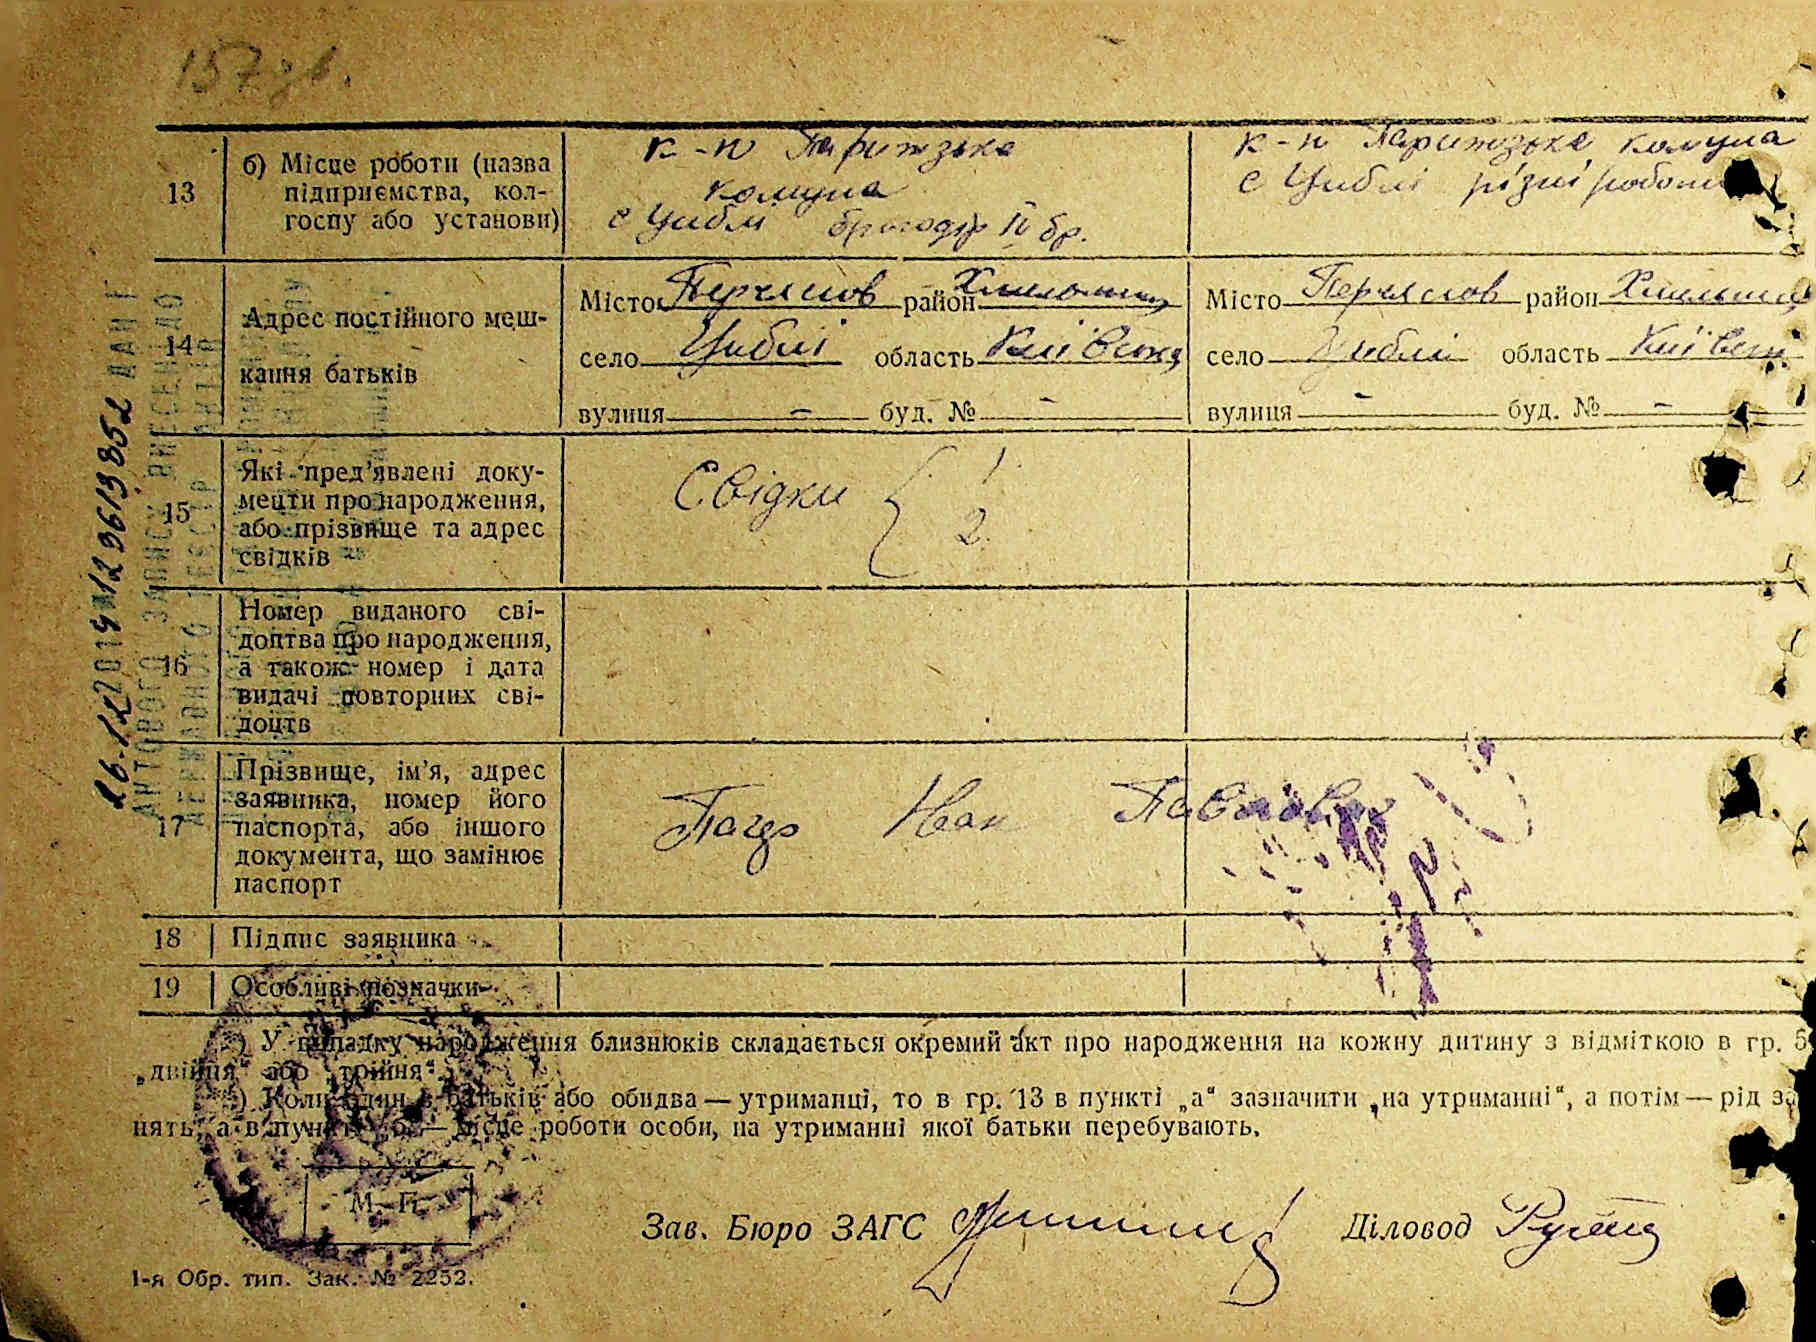 157 зв.
13 б) Місце роботи (назва підприємства, колгоспу або установи)
к-п Паризька
комуна
с Циблі бригадір ІІ бр.
к-п Паризька комуна
с Циблі різні роботи
14 Адрес постійного меш-
кання батьків
Місто Переяслов район Хмельниц
село Циблі область Київська
вулиця - буд. № -
Місто Переяслов район Хмельниц
село Циблі область Київськ
вулиця - буд. № -
15 Які пред'явлені доку-
менти про народження,
або прізвище та адрес
свідків
Свідки { 1
2.
16 Номер виданого сві-
доцтва про народження,
а також номер і дата
видачі повторних сві-
доцтв
17 Прізвище, ім'я, адрес
заявника, номер його
паспорта, або іншого
документа, що замінює
паспорт
Иван Павлович
18 Підпис заявника
19 Особливі позначки
) У випадку народження близнюків складається окремий акт про народження на кожну дитину з відміткою в гр. 5
„двійня“ або „трійня“.
) Коли один з батьків або обидва — утриманці, то в гр. 13 в пункті „а“ зазначити „на утриманні“, а потім — рід за-
нять, а в пункті „б“ — місце роботи особи, на утриманні якої батьки перебувають.
М. П.
Зав. Бюро ЗАГС
Діловод
1-я Обр. тип. Зак. № 2252.